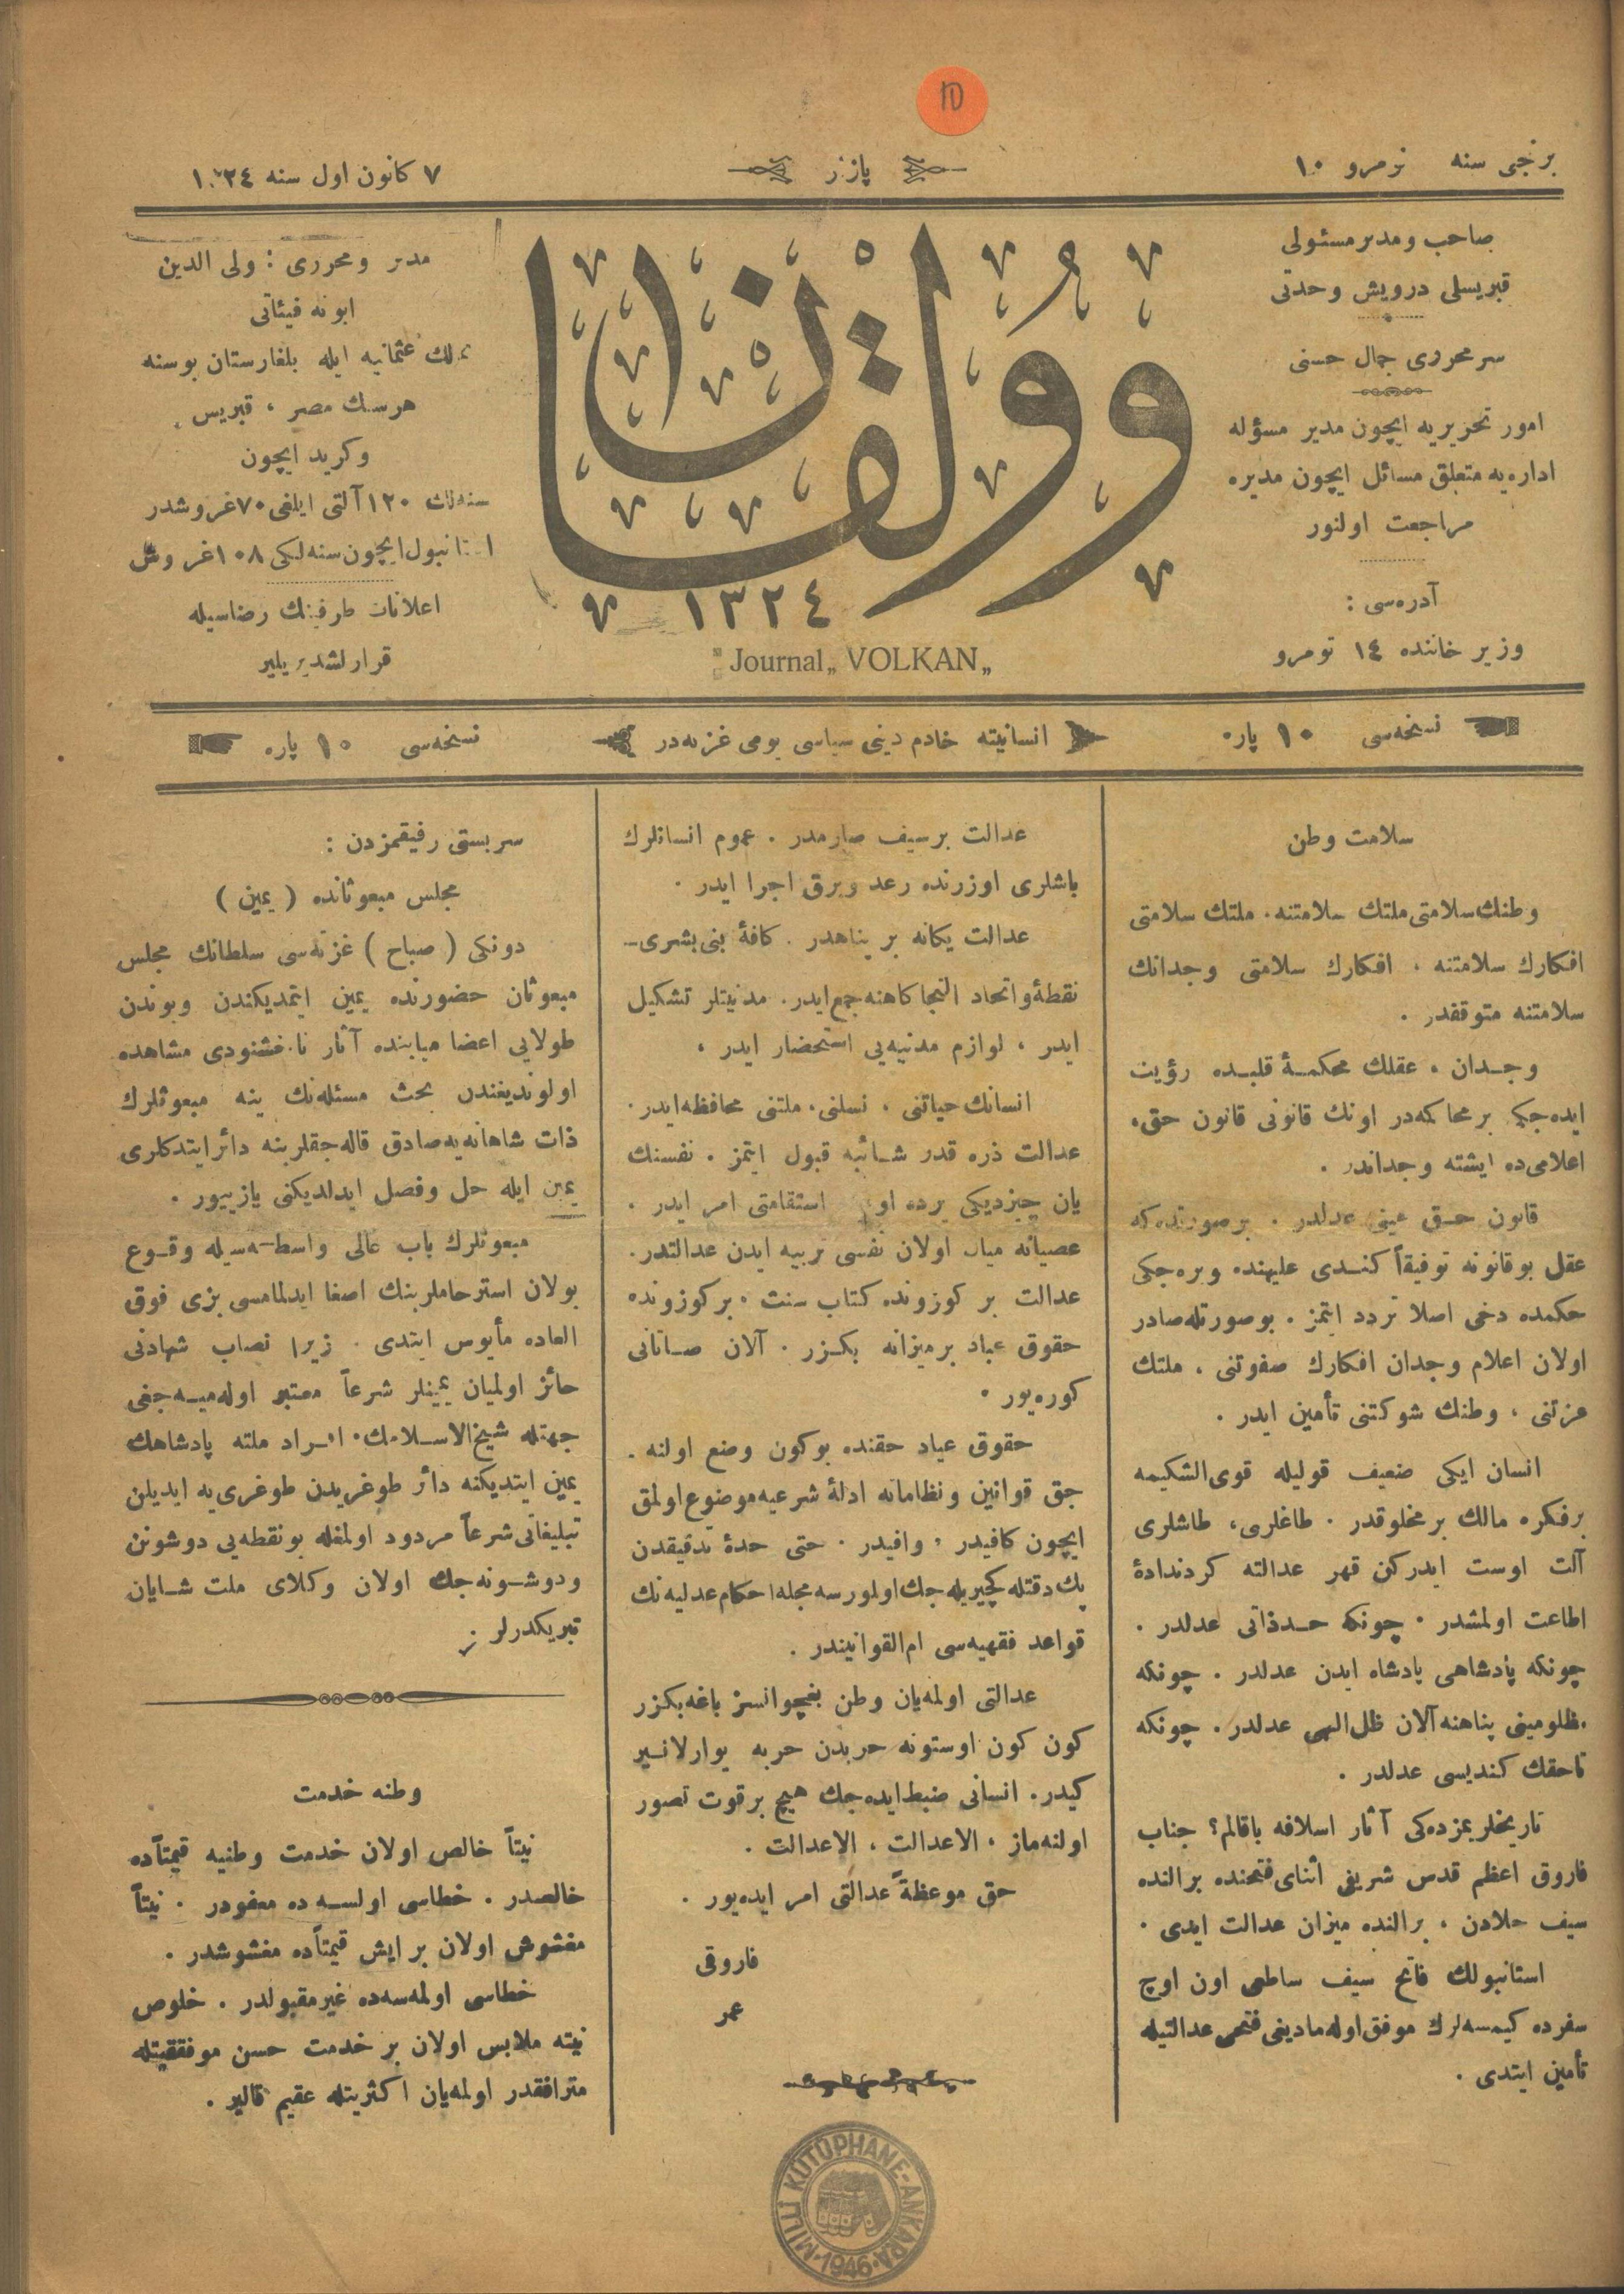 10
برنجی سنه نومرو ۱۰
پازار
۷ كانون اول سنه ۱۳۲٤
صاحب ومدیر مسئولی
قبریسلی درویش وحدتی
سرمحرری جمال حسنی
امور تحریریه ایچون مدیر مسؤله
اداره‌یه متعلق مسائل ایچون مدیره
مراجعت اولنور
آدره‌سی :
وزیر خاننده ۱٤ نومرو
وولقان
۱۳۲٤
Journal „ VOLKAN „
مدیر ومحرری : ولی الدین
ابونه فیئاتی
ممالك عثمانیه ایله بلغارستان بوسنه
هرسك مصر ، قبریس
وكرید ایچون
سنه‌لك ۱۲۰ آلتی ایلغی ۷۰ غروشدر
استانبول ایچون سنه‌لكی ۱۰۸ غروش
اعلانات طرفینك رضاسیله
قرارلشدیریلیر
نسخه‌سی ۱۰ پاره
انسانیته خادم دینی سیاسی یومی غزته‌در
نسخه‌سی ۱۰ پاره
سلامت وطن
وطنك سلامتی ملتك سلامتنه. ملتك سلامتی
افكارك سلامتنه . افكارك سلامتی وجدانك
سلامتنه متوقفدر .
وجدان . عقلك محكمهٔ قلبده رؤیت
ایده‌جكی بر محاكمه‌در اونك قانونی قانون حق.
اعلامی‌ده ایشته وجداندر .
قانون حق عینی عدلدر . برصورتده‌كه
عقل بوقانونه توفیقاً كندی علیهنده ویره‌جكی
حكمده دخی اصلا تردد ایتمز . بوصورتله صادر
اولان اعلام وجدان افكارك صفوتنی ، ملتك
عزتنی ، وطنك شوكتنی تأمین ایدر .
انسان ایكی ضعیف قولیله قوی الشكیمه
برفكره مالك بر مخلوقدر . طاغلری، طاشلری
آلت اوست ایدركن قهر عدالته كردندادهٔ
اطاعت اولمشدر . چونكه حدذاتی عدلدر .
چونكه پادشاهی پادشاه ایدن عدلدر . چونكه
مظلومینی پناهنه آلان ظل الهی عدلدر . چونكه
تاحقك كندیسی عدلدر .
تاریخلریمزده‌كی آثار اسلافه باقالم؟ جناب
فاروق اعظم قدس شریفی اثنای فتحنده برالنده
سیف جلادن . برالنده میزان عدالت ایدی .
استانبولك فاتح سیف ساطعی اون اوچ
سفرده كیمسه‌لرك موفق اوله‌مادینی فتحی عدالتیله
تأمین ایتدی .
عدالت برسیف صارمدر . عموم انسانلرك
باشلری اوزرنده رعد وبرق اجرا ایدر .
عدالت یكانه بر پناهدر . كافهٔ بنی بشری
نقطهٔ واتحاد التجاكاهنه جمع ایدر. مدنیتلر تشكیل
ایدر ، لوازم مدنیه‌یی استحضار ایدر .
انسانك حیاتنی . نسلنی. ملتنی محافظه ایدر.
عدالت ذره قدر شائبه قبول ایتمز . نفسنك
یان چیزدیكی یرده استقامتی امر ایدر .
عصیانه میال اولان نفسی تربیه ایدن عدالتدر.
عدالت بر كوزونده كتاب سنت . بر كوزونده
حقوق عباد برمیزانه بكزر . آلان صاتانی
كوره‌یور .
حقوق عباد حقنده بوكون وضع اولنه .
جق قوانین ونظاماته ادلهٔ شرعیه موضوع اولمق
ایچون كافیدر . وافیدر . حتی حدهٔ تدقیقدن
پك دقتله كچیریله‌جك اولورسه مجله احكام عدلیه‌نك
قواعد فقهیه‌سی ام القوانیندر .
عدالتی اولمه‌یان وطن بغچوانسز باغه بكزر
كون كون اوستونه حربدن حربه یوارلانیر
كیدر. انسانی ضبط ایده‌جك هیچ برقوت تصور
اولنه‌ماز . الاعدالت ، الاعدالت .
حق موعظةً عدالتی امر ایده‌یور .
فاروقی
عمر
سربستی رفیقمزدن :
مجلس مبعوثانده ( یمین )
دونكی ( صباح ) غزته‌سی سلطانك مجلس
مبعوثان حضورنده یمین ایتمدیكندن وبوندن
طولایی اعضا میاننده آثار ناخشنودی مشاهده
اولوندیغندن بحث مسئله‌نك ینه مبعوثلرك
ذات شاهانه‌یه صادق قاله‌جقلرینه دائر ایتدكلری
یمین ایله حل وفصل ایدلدیكنی یازییور .
مبعوثلرك باب عالی واسطه‌سیله وقوع
بولان استرحاملرینك اصغا ایدلمامسی بزی فوق
العاده مأیوس ایتدی . زیرا نصاب شهادتی
حائز اولمیان یمینلر شرعاً معتبر اوله‌میه‌جغی
جهتله شیخ الاسلامك. افراد ملته پادشاهك
یمین ایتدیكنه دائر طوغریدن طوغری‌یه ایدیلن
تبلیغاتی شرعاً مردود اولمغله بونقطه‌یی دوشونن
ودوشونه‌جك اولان وكلای ملت شایان
تبریكدرلر .
وطنه خدمت
نیتاً خالص اولان خدمت وطنیه قیمتاًده
خالصدر . خطاسی اولسه ده معفودر . نیتاً
مغشوش اولان بر ایش قیمتاًده مغشوشدر .
خطاسی اولمه‌سه‌ده غیرمقبولدر . خلوص
نیته ملابس اولان بر خدمت حسن موفقیتله
مترافقدر اولمه‌یان اكثریتله عقیم قالیر .
MİLLİ KÜTÜPHANE-ANKARA
1946